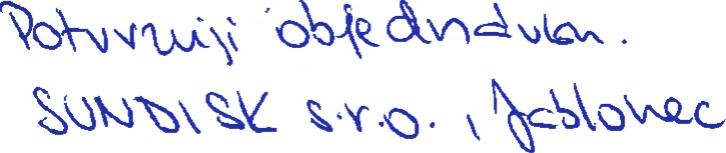 Potvrzuji objednávku.
SUNDISK s.r.o., Jablonec